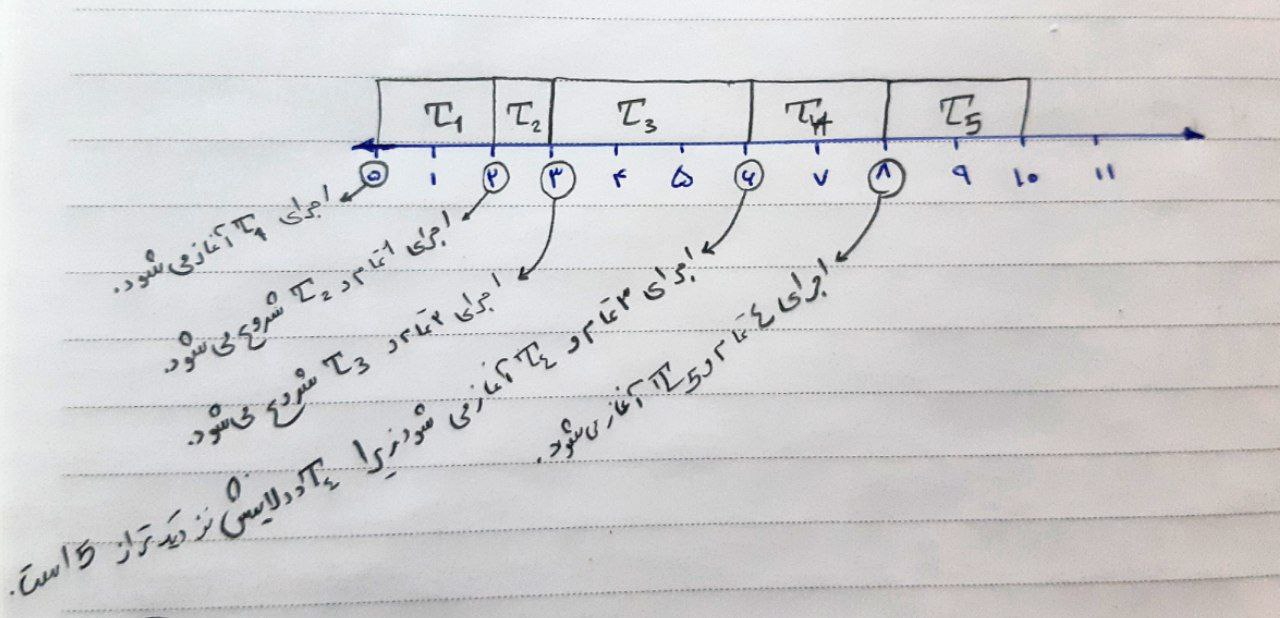 τ1 τ2 τ3 τ4 τ5
۰ ۱ ۲ ۳ ۴ ۵ ۶ ۷ ۸ ۹ ۱۰ ۱۱
اجرای τ1 آغاز می شود.
اجرای ۱ تمام و τ2 شروع می شود.
اجرای ۲ تمام و τ3 شروع می شود.
اجرای ۳ تمام و τ٤ آغاز می شود زیرا τ٤ ددلاینش نزدیکتر از 5 است.
اجرای ٤ تمام و τ5 آغاز می شود.